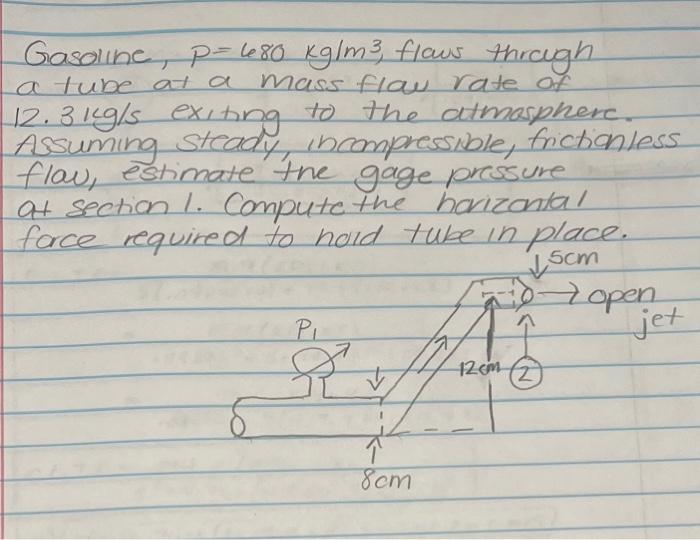 Gasoline, p=680 kg/m³, flows through
a tube at a mass flow rate of
12.3 kg/s exiting to the atmosphere.
Assuming steady, incompressible, frictionless
flow, estimate the gage pressure
at section 1. Compute the horizontal
force required to hold tube in place.
5cm
→ open
jet
P1
12cm
2
8cm